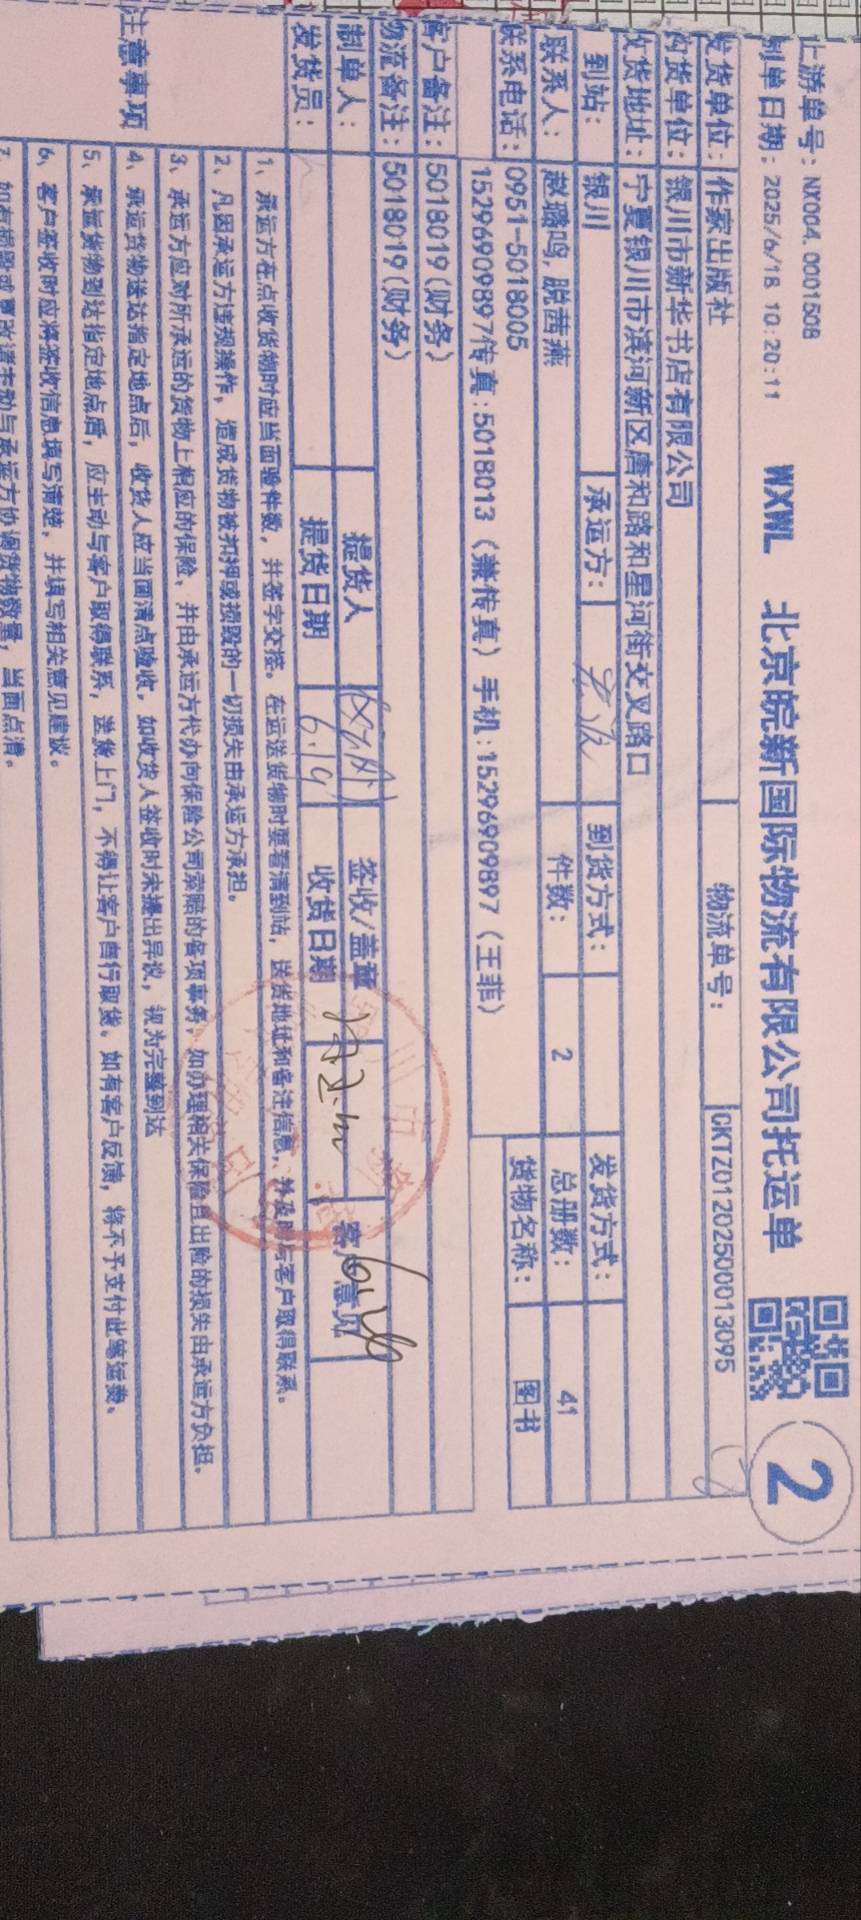 上游单号：NX004.0001508
制单日期：2025/6/18 10:20:11
WXWL 北京皖新国际物流有限公司托运单
2
发货单位：作家出版社 物流单号：CKTZ01202500013095
收货单位：银川市新华书店有限公司
收货地址：宁夏银川市滨河新区唐和路和星河街交叉路口
到站：银川 承运方： 到货方式： 发货方式：
联系人：赵璐鸣,脱茜燕 件数：2 总册数：41
联系电话：0951-5018005 货物名称：图书
15296909897传真:5018013（兼传真）手机:15296909897（王菲）
客户备注：5018019(财务)
物流备注：5018019(财务)
制单人： 提货人 签收/盖章 客户意见
发货员： 提货日期 6.19 收货日期
注意事项
1、承运方在点收货物时应当面验件数，并签字交接。在运送货物时要看清到站，送货地址和备注信息，并及时与客户取得联系。
2、凡因承运方违规操作，造成货物被扣押或损毁的一切损失由承运方承担。
3、承运方应对所承运的货物上相应的保险、并由承运方代办向保险公司索赔的各项事务，如办理相关保险且出险的损失由承运方负担。
4、承运货物送达指定地点后，收货人应当面清点验收，如收货人签收时未提出异议，视为完整到达
5、承运货物到达指定地点后，应主动与客户取得联系，送货上门，不得让客户自行取货。如有客户反馈，将不予支付此笔运费。
6、客户签收时应将签收信息填写清楚，并填写相关意见建议。